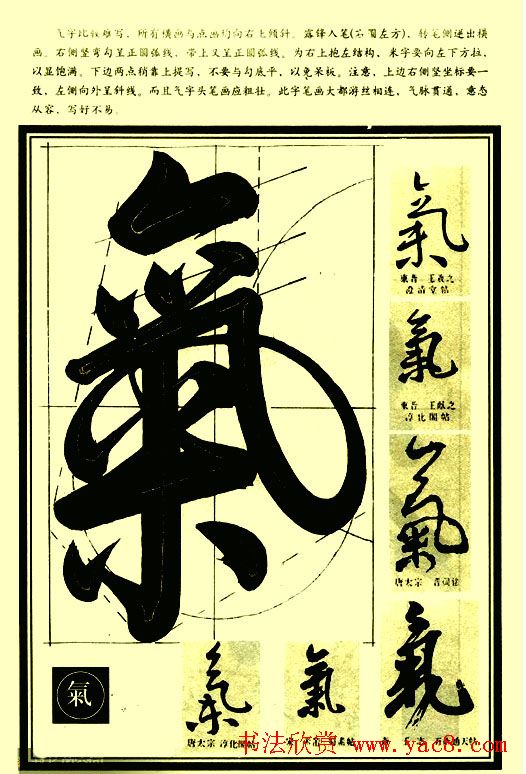 气字比较难写，所有横画与点画均向右上倾斜。露锋入笔(方圆左方)，转笔侧逆出横
画。右侧竖弯勾呈正圆弧线，带上又呈正圆弧线。为右上抱左结构，米字要向左下方拉，
以显饱满。下边两点稍靠上提写，不要与勾底平，以免呆板。注意，上边右侧竖坐标要一
致，左侧向外呈斜线。而且气字头笔画应粗壮。此字笔画大都游丝相连，气脉贯通，意态
从容，写好不易。
氣
氣
東晋 王羲之
澄清堂帖
氣
東晋 王献之
淳化閣帖
氣
唐太宗 晋祠铭
氣
氣
唐太宗 淳化閣帖
氣
氣
书法欣赏 www.yac8.com